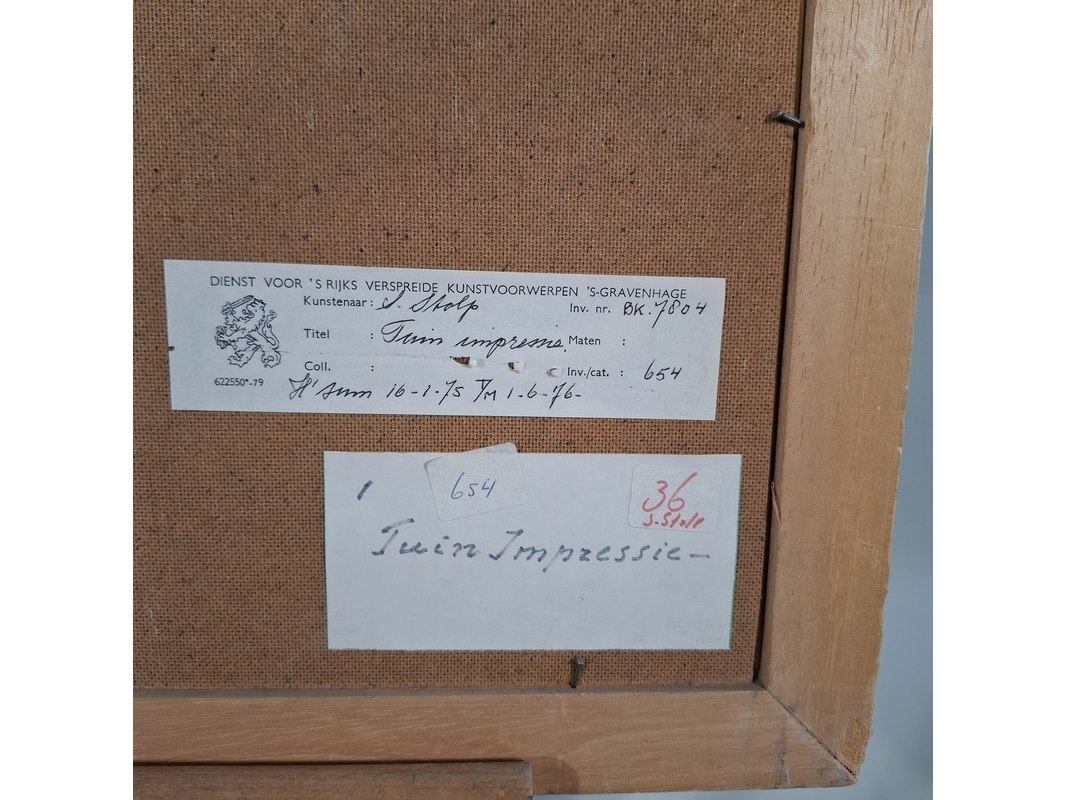 DIENST VOOR 'S RIJKS VERSPREIDE KUNSTVOORWERPEN 'S-GRAVENHAGE
Kunstenaar : S. Stolp Inv. nr. BK. 7804
Titel : Tuin impressie. Maten :
Coll. : Inv./cat. : 654
622550*-79
H'sum 16-1-75 T/M 1-6-76-
1 654 36
S. Stolp
Tuin Impressie-